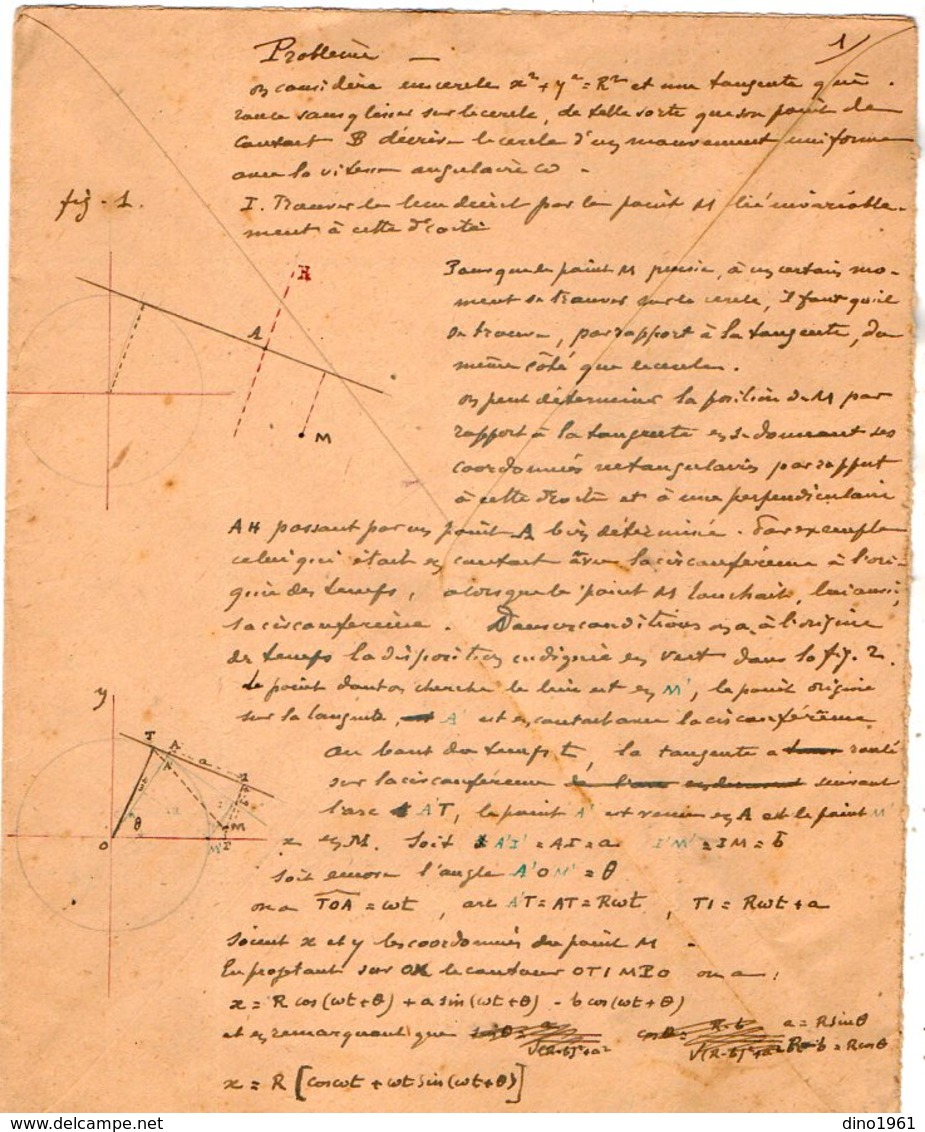 Problème —
1/
on considère un cercle x² + y² = R² et une tangente qui
roule sans glisser sur le cercle, de telle sorte que son point de
contact B décrive le cercle d'un mouvement uniforme
avec la vitesse angulaire ω -
fig - 1.
I. Trouver le lieu décrit par le point M lié invariable-
ment à cette droite
Pour que le point M puisse, à un certain mo-
ment se trouver sur le cercle, il faut qu'il
se trouve, par rapport à la tangente, du
même côté que le cercle.
on peut déterminer la position de M par
rapport à la tangente en se donnant ses
coordonnées rectangulaires par rapport
à cette droite et à une perpendiculaire
H
A
M
AH passant par un point A bien déterminé. Par exemple
celui qui était en contact avec la circonférence à l'ori-
gine des temps, alors que le point M touchait, lui aussi,
la circonférence. Dans ces conditions on a, à l'origine
des temps la disposition indiquée en vert dans la fig. 2.
le point dont on cherche le lieu est en M', le point origine
sur la tangente, A' est en contact avec la circonférence
au bout du temps t, la tangente a roulé
sur la circonférence suivant
l'arc A'T, le point A' est venu en A et le point M'
en M. soit A'I' = AI = a I'M' = IM = b
soit encore l'angle A'OM' = θ
y
T
A
a
I
b
M
M'
P
O
θ
ωt
x
on a TOA = ωt, arc A'T = AT = Rωt, TI = Rωt + a
soient x et y les coordonnées du point M -
En projetant sur OX le contour OTIMPO on a :
x = R cos(ωt+θ) + a sin(ωt+θ) - b cos(ωt+θ)
et en remarquant que a = R sin θ
R - b = R cos θ
x = R [cos ωt + ωt sin(ωt+θ)]
dino1961